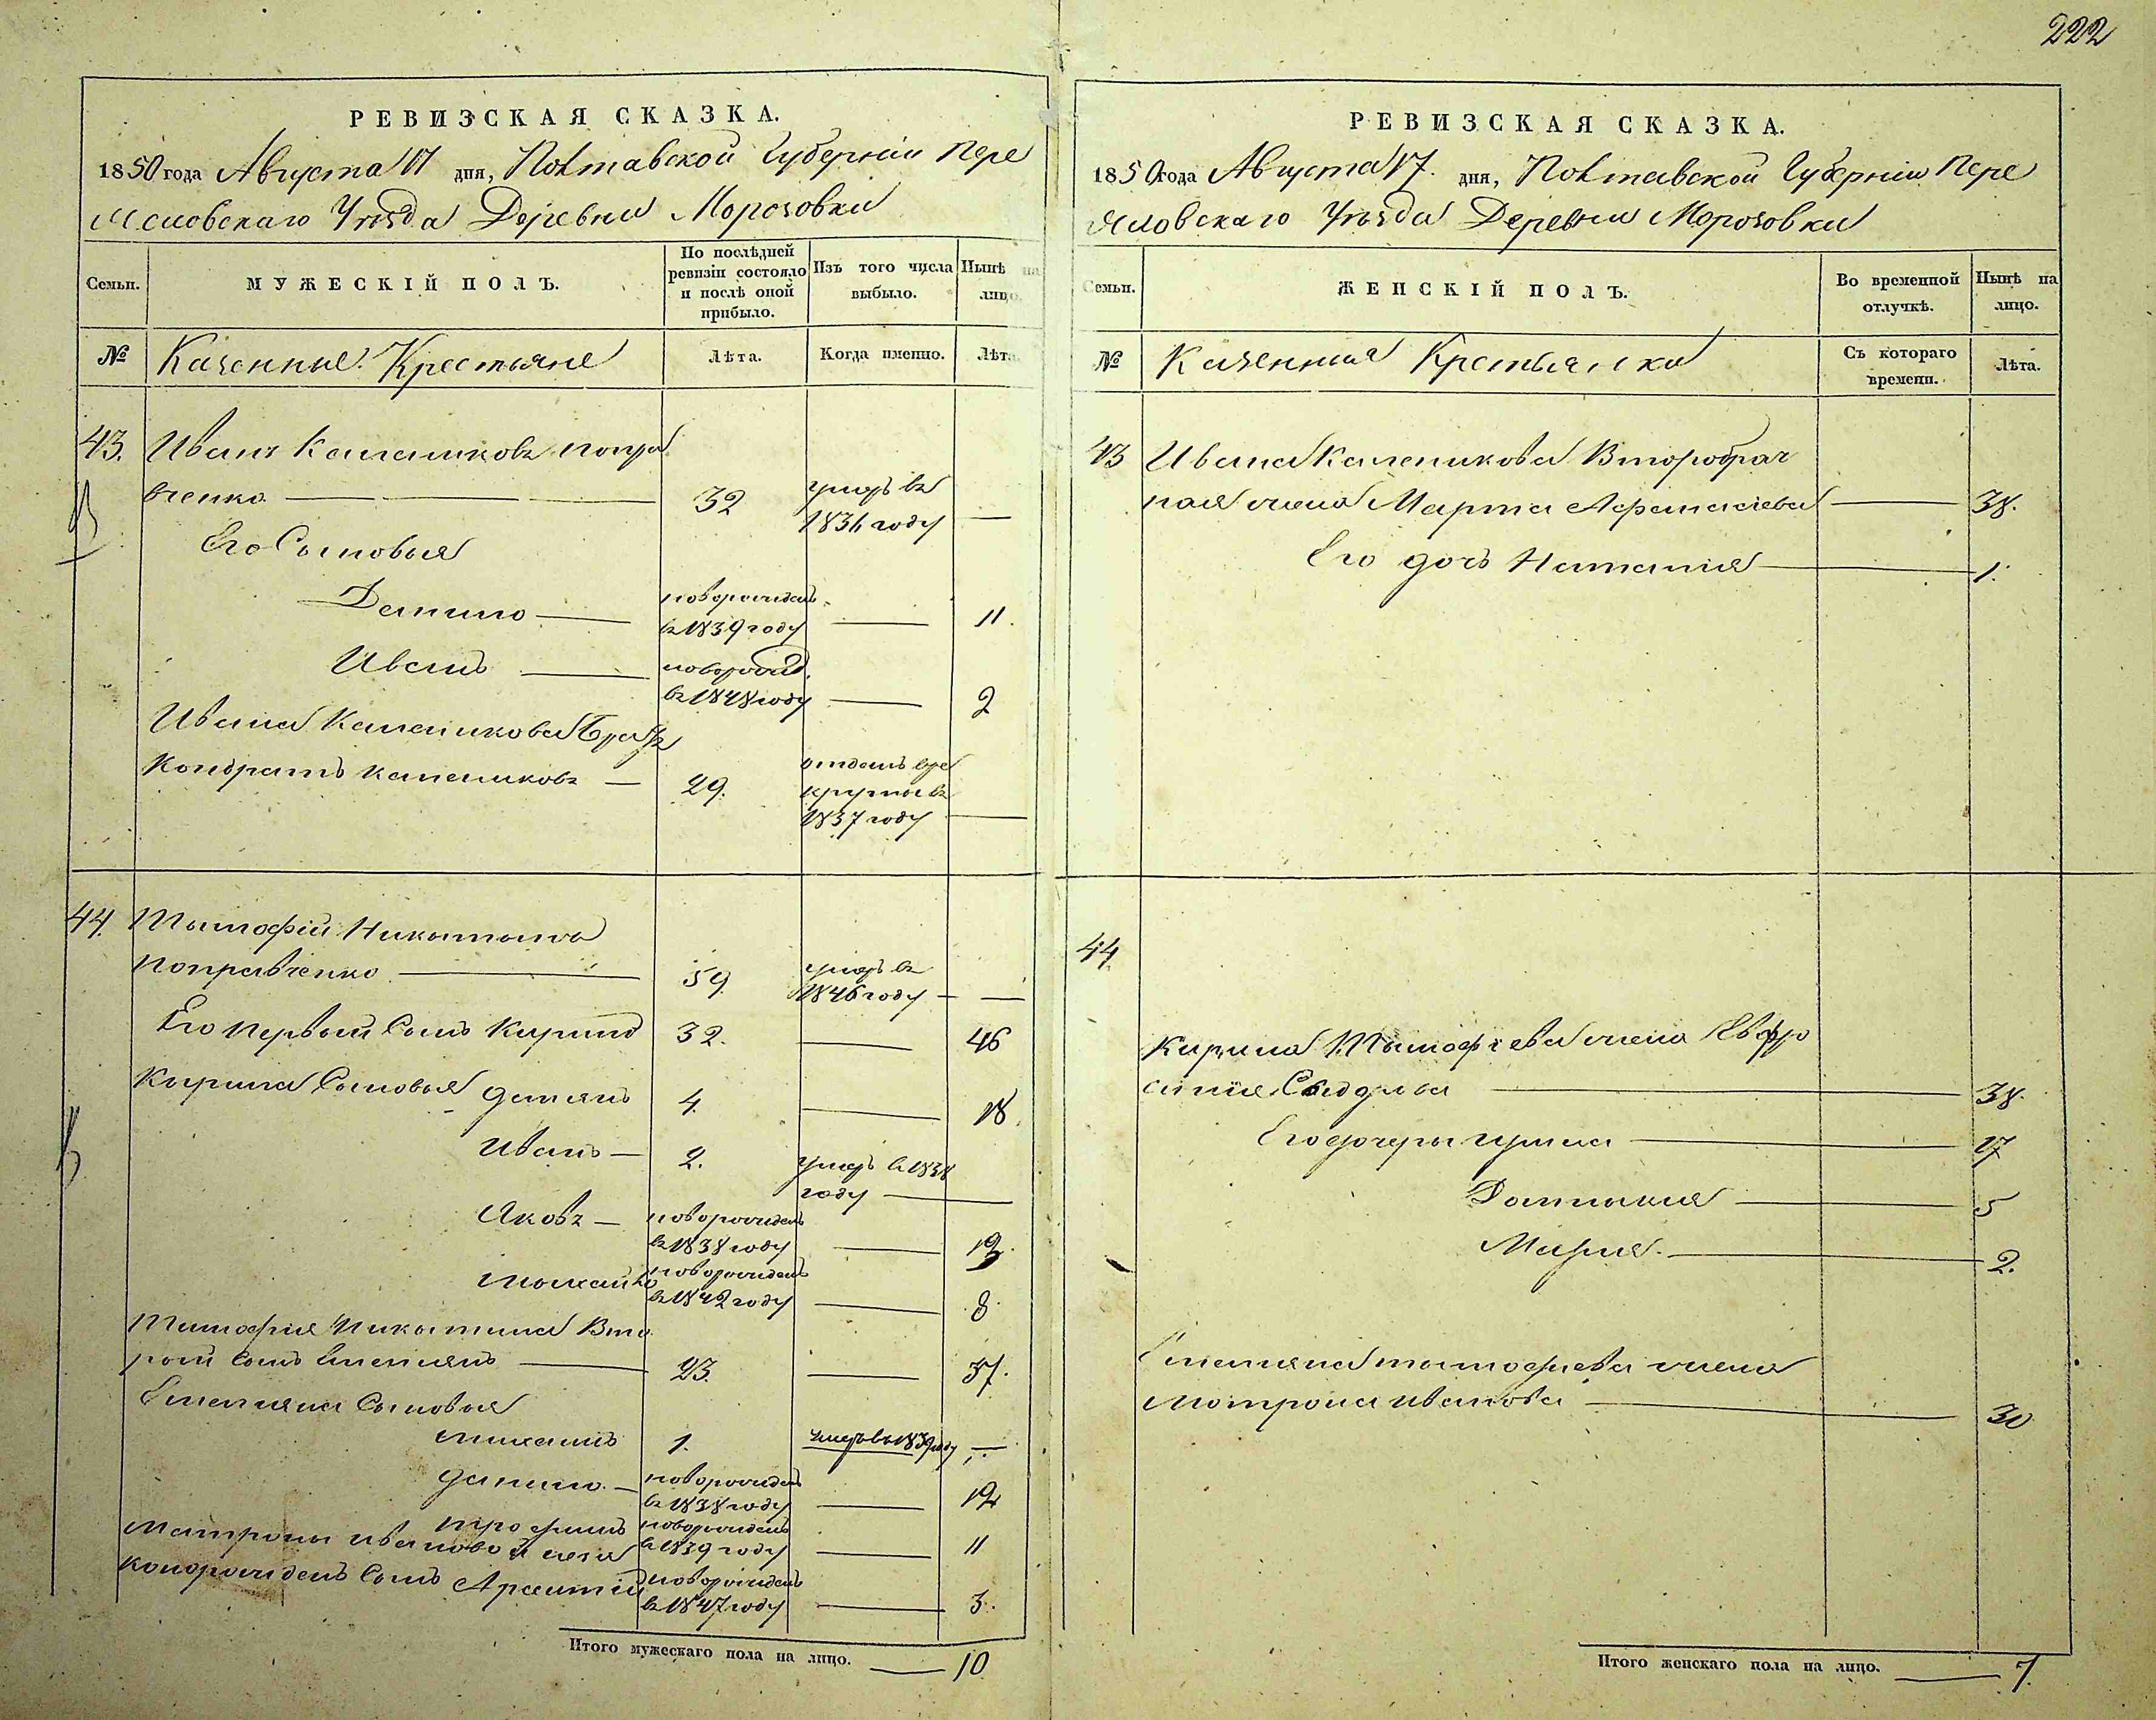 222
РЕВИЗСКАЯ СКАЗКА.
1850 года Августа 17 дня, Полтавской Губерніи Пере
яславскаго Уѣзда Деревни Морозовки
Семьи.
МУЖЕСКІЙ ПОЛЪ.
По послѣдней
ревизіи состояло
и послѣ оной
прибыло.
Изъ того числа
выбыло.
Нынѣ на
лицо.
№
Казенные Крестьяне
Лѣта.
Когда именно.
Лѣта
43. Иванъ Калениковъ Попра
вченко 32 умеръ въ
1836 году
Его Сыновья
Данило новорожденъ
въ 1839 году 11.
Иванъ новорожд.
въ 1848 году 2
Ивана Каленикова Братъ
Кондратъ Калениковъ 29. отданъ въ ре
круты въ
1837 году
44. Тымофій Никытынъ
Поправченко 59 умеръ въ
1846 году
Его первый Сынъ Кирило 32. 46
Кырила Сыновья Демянъ 4. 18.
Иванъ 2. умеръ въ 1838
году
Яковъ новорожденъ
въ 1838 году 12.
Михайло новорожденъ
въ 1842 году 8.
Тимофія Никытина Вто
рой Сынъ Степанъ 23. 37.
Степана Сыновья
Михаилъ 1. умеръ въ 1839 году
Данило новорожденъ
въ 1838 году 12
Трофимъ новорожденъ
въ 1839 году 11
Матроны Ивановой неза
конорожденъ Сынъ Арсентій новорожденъ
въ 1847 году 3.
Итого мужескаго пола на лицо. 10
РЕВИЗСКАЯ СКАЗКА.
1850 года Августа 17. дня, Полтавской Губерніи Пере
яславскаго Уѣзда Деревни Морозовки
Семьи.
ЖЕНСКІЙ ПОЛЪ.
Во временной
отлучкѣ.
Нынѣ на
лицо.
№
Казенныя Крестьянки
Съ котораго
времени.
Лѣта.
43 Ивана Каленикова Второбрач
ная жена Марта Афанасіева 38.
Его дочь Наталія 1.
44.
Кирила Тымофіева жена Евфро
синія 38.
Его дочеры Ирина 17
Домникия 5
Марія. 2.
Степана Тымофіева жена
Мотрона Иванова 30
Итого женскаго пола на лицо. 7.